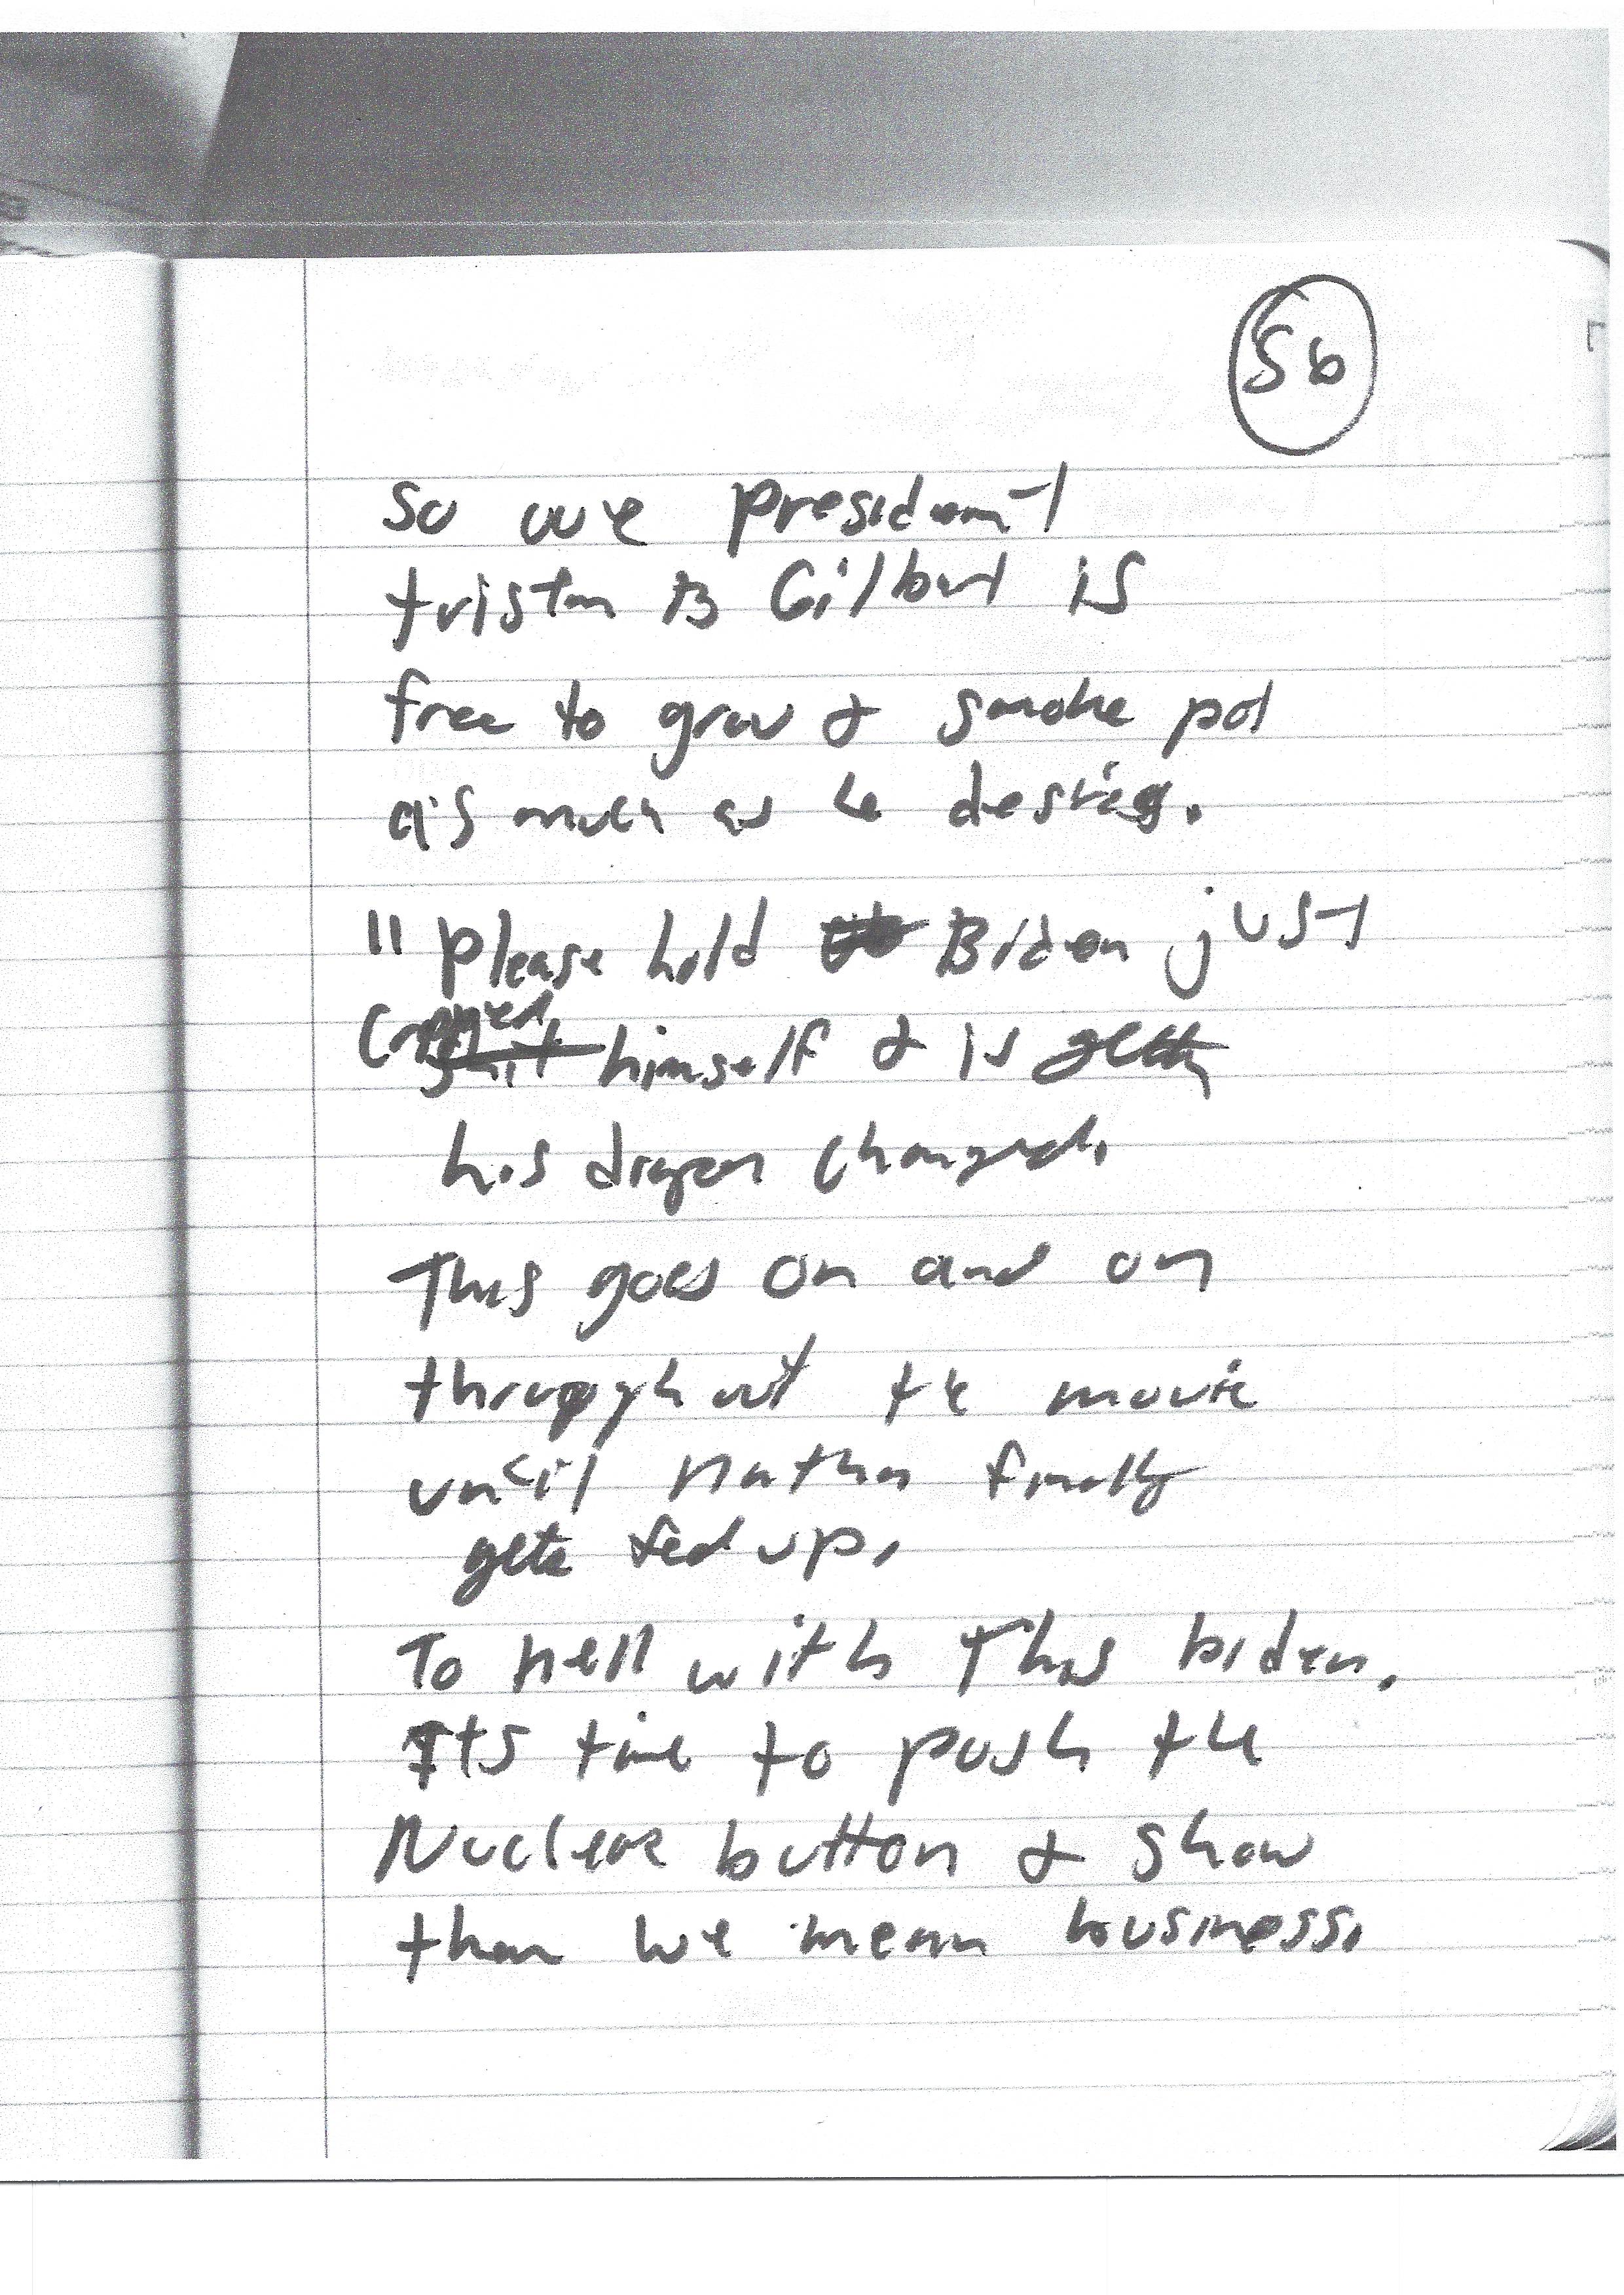 56
So our president
tristan B Gilbert is
free to grow & smoke pot
as much as he desires.
"Please hold Biden just
crapped himself & is
his diaper changed.
This goes on and on
throughout the movie
until Nathan finally
gets fed up.
To hell with This biden.
Its time to push the
Nuclear button & show
them we mean business.